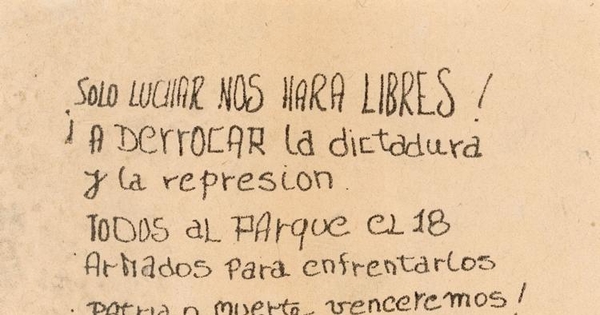 SOLO LUCHAR NOS HARA LIBRES!
¡A DerrOCAR la dictadura
y la represion.
TODOS aL PArque eL 18
ArMados para enfrentarlos
patria o muerte venceremos!